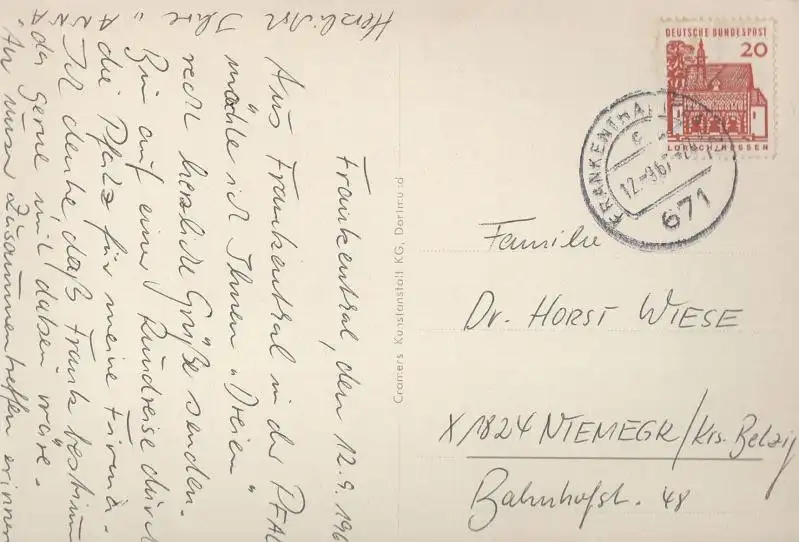 Frankenthal, den 12.9.196
Aus Frankenthal in der PFAL
möchte ich Ihnen „Dreien"
recht herzliche Grüße senden.
Bin auf einer Rundreise durch
die Pfalz für meine Firma.
Ich denke, daß Frank bestimm
da gerne mit dabei wäre.
An unser Zusammentreffen erinner
Herzlichst Ihre „ANNA
Cramers Kunstanstalt KG, Dortmund
DEUTSCHE BUNDESPOST
20
LORSCH/HESSEN
FRANKENTHAL
12.-9.67
671
Familie
Dr. HORST WIESE
X 1824 NIEMEGK/Krs. Belzig
Bahnhofstr. 48